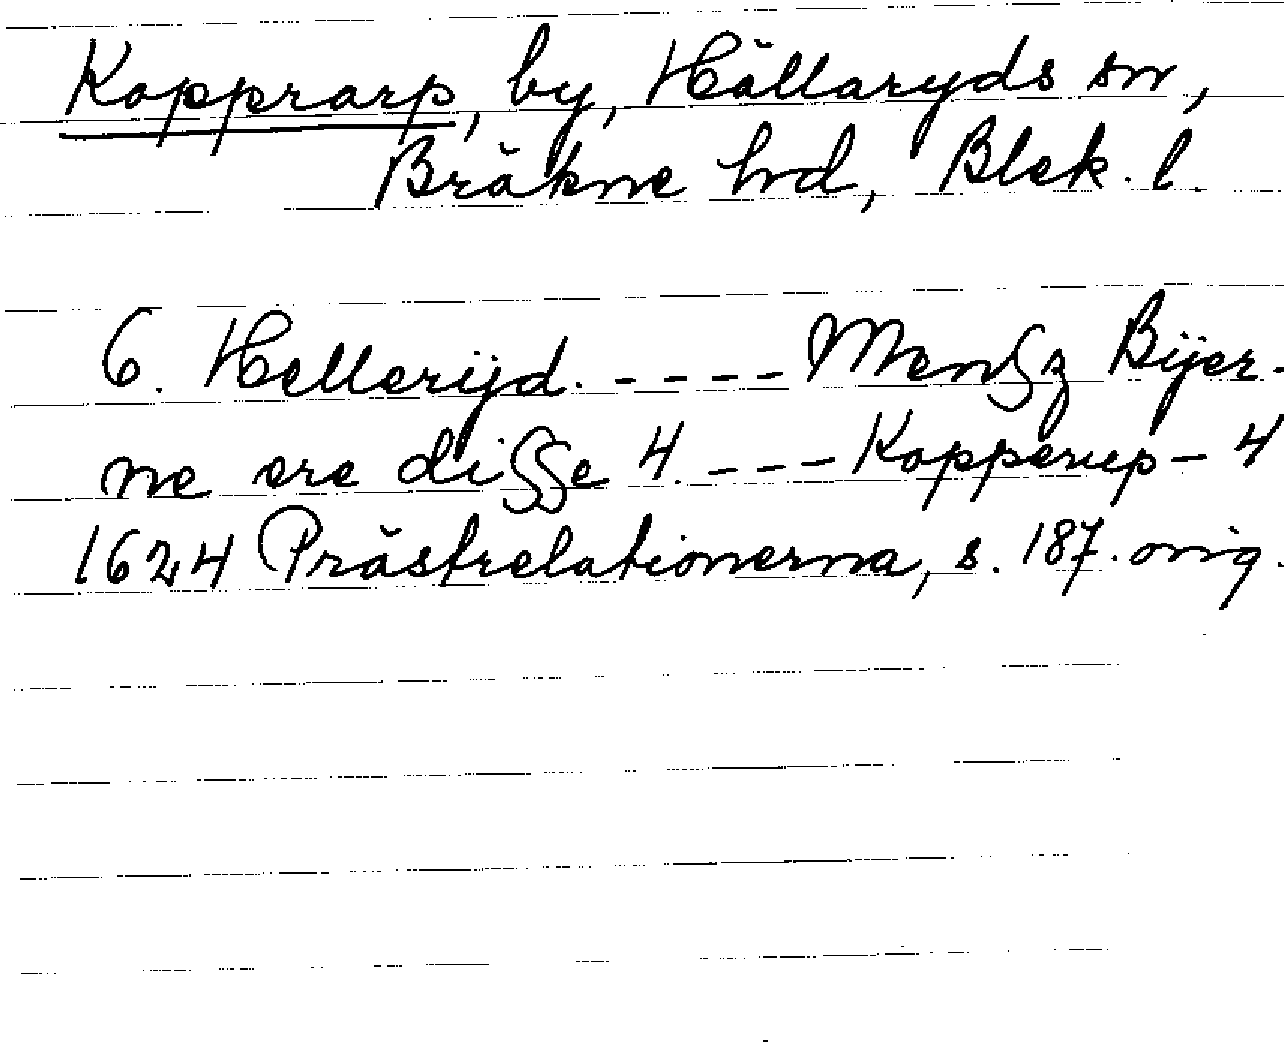 Kopprarp, by, Hällaryds sn,
Bräkne hrd, Blek. l.
6. Hellerijd. - - - - Menſz Bÿer-
ne ere diſſe 4. - - - Kopperup - 4
1624 Prästrelationerna, s. 187. orig.